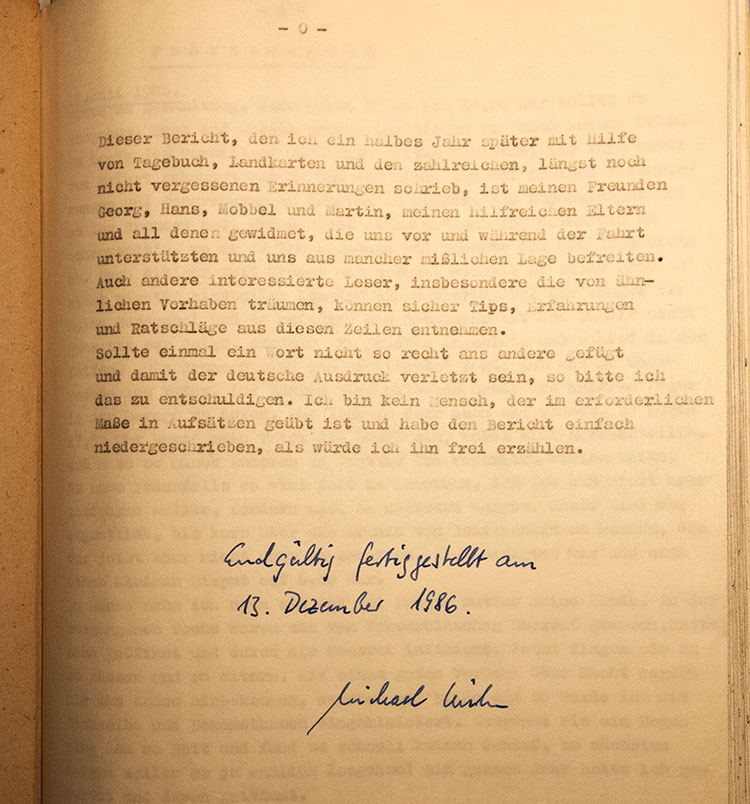 - 0 -
Dieser Bericht, den ich ein halbes Jahr später mit Hilfe
von Tagebuch, Landkarten und den zahlreichen, längst noch
nicht vergessenen Erinnerungen schrieb, ist meinen Freunden
Georg, Hans, Mobbel und Martin, meinen hilfreichen Eltern
und all denen gewidmet, die uns vor und während der Fahrt
unterstützten und uns aus mancher mißlichen Lage befreiten.
Auch andere interessierte Leser, insbesondere die von ähn-
lichen Vorhaben träumen, können sicher Tips, Erfahrungen
und Ratschläge aus diesen Zeilen entnehmen.
Sollte einmal ein Wort nicht so recht ans andere gefügt
und damit der deutsche Ausdruck verletzt sein, so bitte ich
das zu entschuldigen. Ich bin kein Mensch, der im erforderlichen
Maße in Aufsätzen geübt ist und habe den Bericht einfach
niedergeschrieben, als würde ich ihn frei erzählen.
Endgültig fertiggestellt am
13. Dezember 1986.
Michael